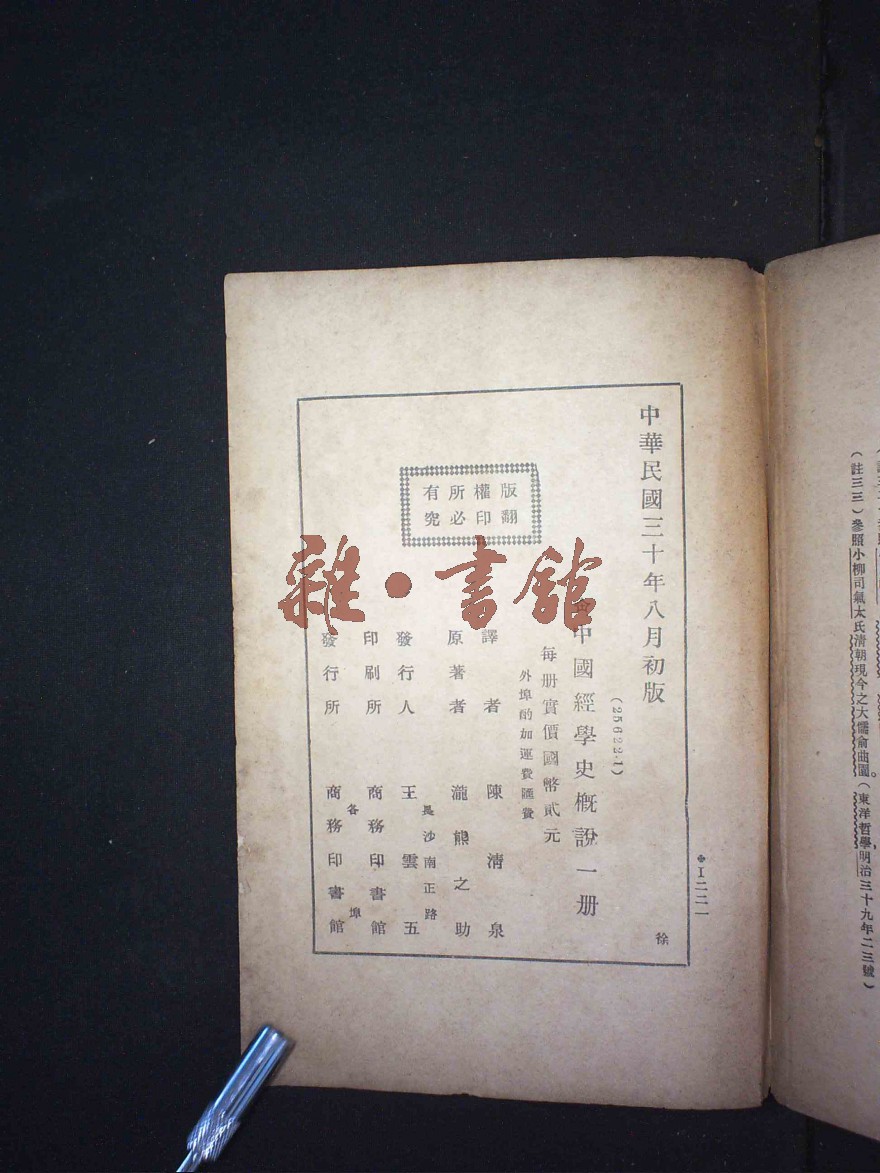 （註三三）參照小柳司氣太氏清朝現今之大儒俞曲園。（東洋哲學，明治三十九年二三號）
中華民國三十年八月初版
＊Ⅰ二二一
徐
（25622·1）
中國經學史概說一册
每册實價國幣貳元
外埠酌加運費匯費
版權所有
翻印必究
譯者 陳清泉
原著者 瀧熊之助
發行人 王雲五
沙南正路
印刷所 商務印書館
各埠
發行所 商務印書館
雜·書館